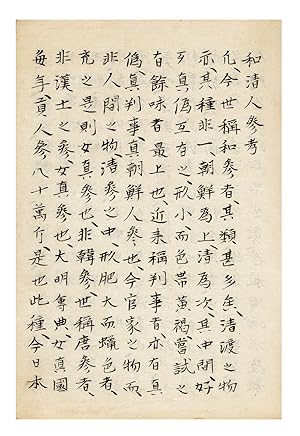 和清人參考
凡今世稱和參者其類甚多矣清渡之物
亦其種非一朝鮮為上清為次其中間好
歹真偽互有之形小而色帶黃褐嘗試之
有餘味者最上也近來稱判事者亦有真
偽真判事真朝鮮人參也今官家之物而
非人間之物清參之中形肥大而蠟色者
充之是則女真參也非韓參世稱唐參者
非漢土之參女真參也大明會典女真國
每年貢人參八十萬斤是也此種今日本